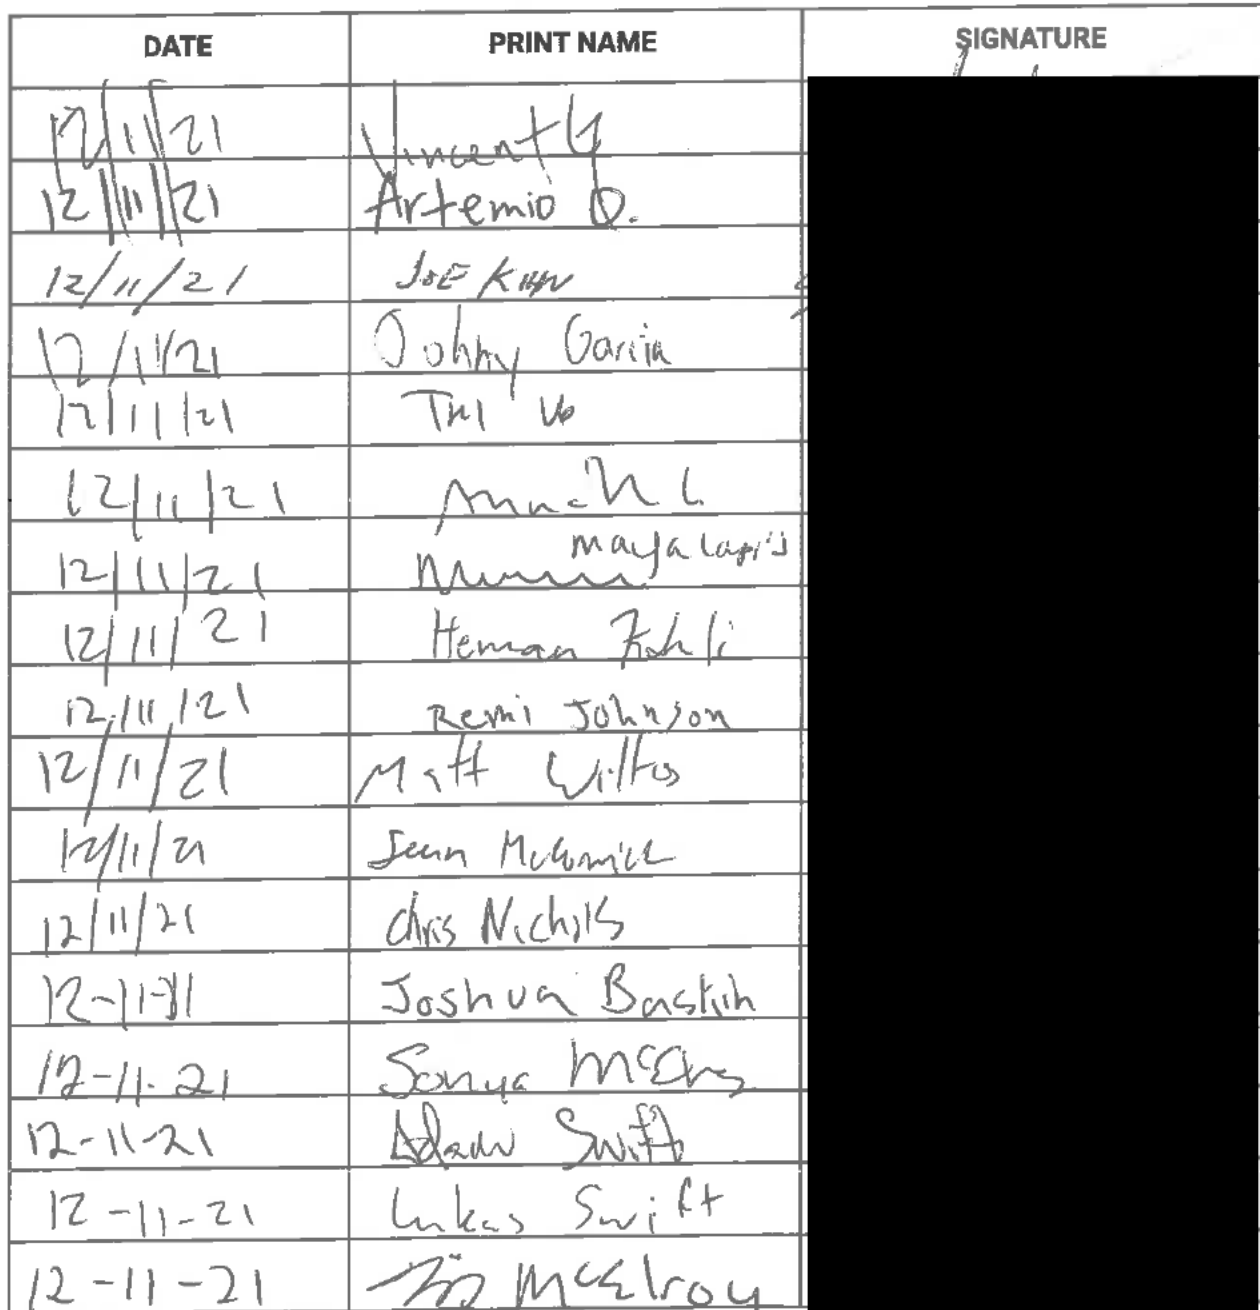 DATE PRINT NAME SIGNATURE
12/11/21 Vincent G
12/11/21 Artemio Q.
12/11/21 JOE
12/11/21 Johny Garcia
12/11/21 TRI Vo
12/11/21
12/11/21 Maya
12/11/21 Heman Kohli
12/11/21 Remi Johnson
12/11/21 Matt
12/11/21 Sean McCormick
12/11/21 Chris Nichols
12-11- Joshua
12-11-21 Sonya
12-11-21 Adam Swift
12-11-21 Lukas Swift
12-11-21 McElroy